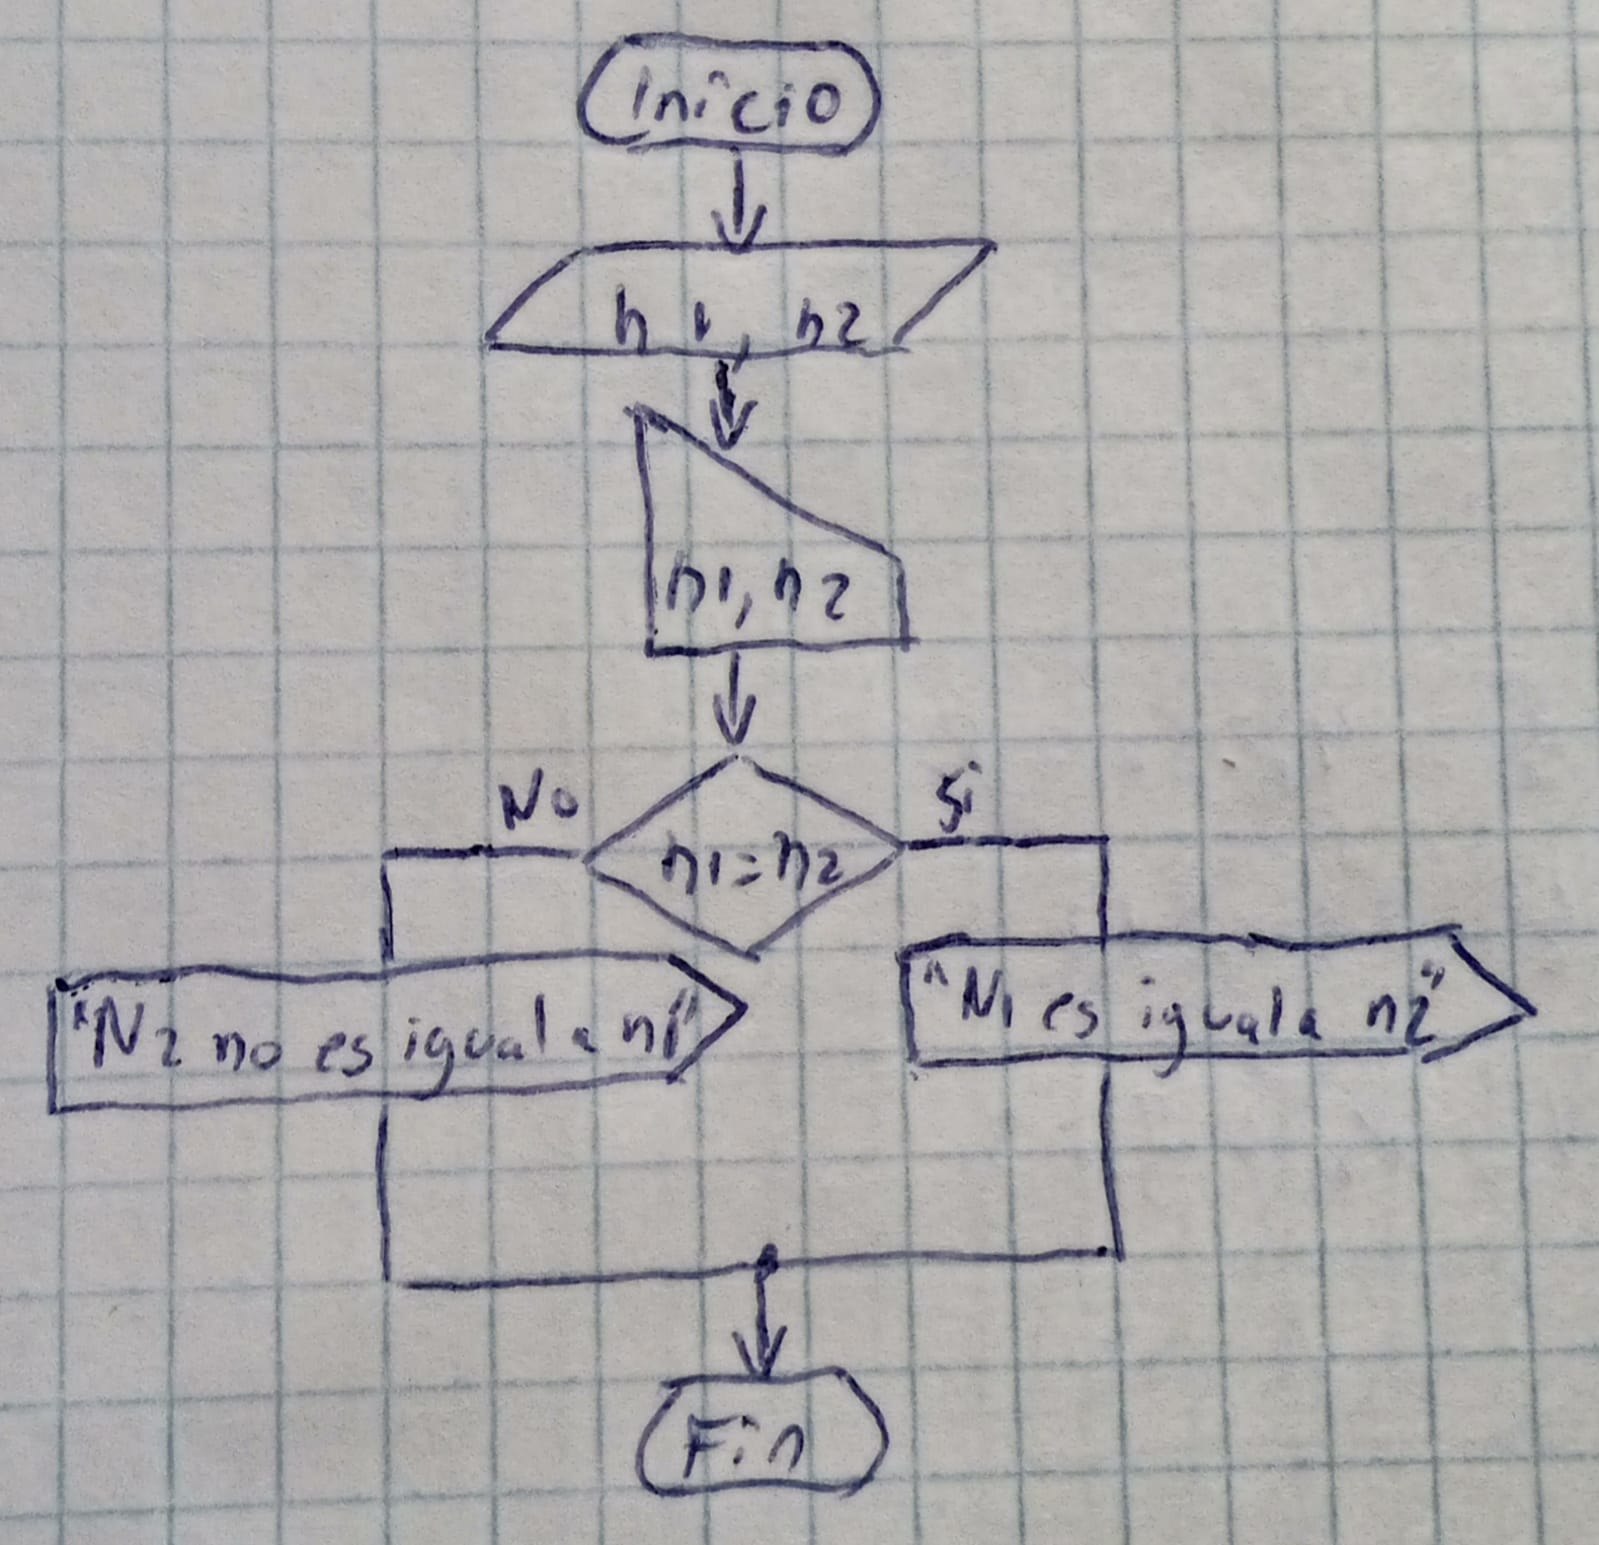 Inicio
n1, n2
n1, n2
No
Si
n1=n2
"N2 no es igual a n1"
"N1 es igual a n2"
Fin